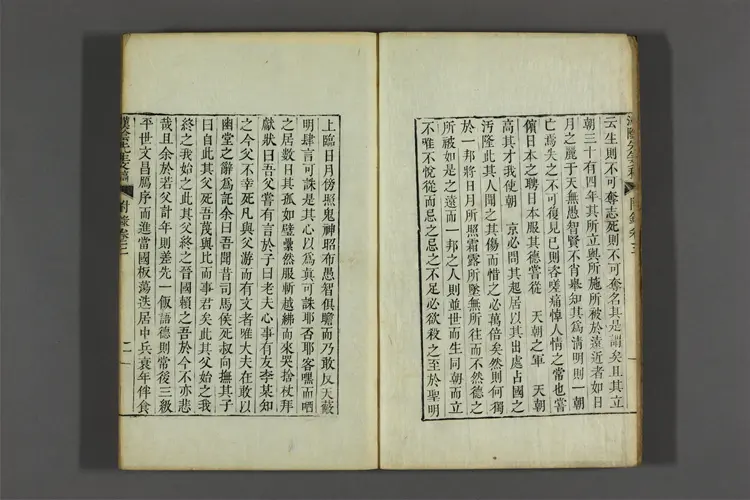 云生則不可奪志死則不可奪名其是謂矣且其立
朝三十有四年其所立與所施所被於遠近者如日
月之麗于天無愚智賢不肖舉知其為清明則一朝
亡焉失之不可復見已則咨嗟痛悼人情之常也嘗
儐日本之聘日本服其德嘗從 天朝之軍 天朝
高其才我使朝 京必問其起居以其出處占國之
汚隆此其人聞之其傷而惜之必萬倍矣然則何獨
於一邦將日月所照霜露所墜無所往而不然德之
所被如是之遠而一邦之人則並世而生同朝而立
不唯不悅從而忌之忌之不足必欲殺之至於聖明
上臨日月傍照鬼神昭布愚智俱瞻而乃敢反天蔽
明肆言可誅是其心以為真可誅耶否耶客嘿而哂
之居數日其孤如璧纍然服斬越紼而來哭捨杖拜
獻狀曰吾父嘗有言於子曰老夫心事有友李某知
之今父不幸死凡與父游而有文者唯大夫在敢以
幽堂之辭為託余曰吾聞昔司馬侯死叔向撫其子
曰自此其父死吾蔑與比而事君矣此其父始之我
終之我始之此其父終之晉國賴之吾於今不亦悲
哉且余於若父計年則差先一飯語德則常後三級
平世文昌鴈序而進當國板蕩迭居中兵衰年伴食
附錄卷三
二